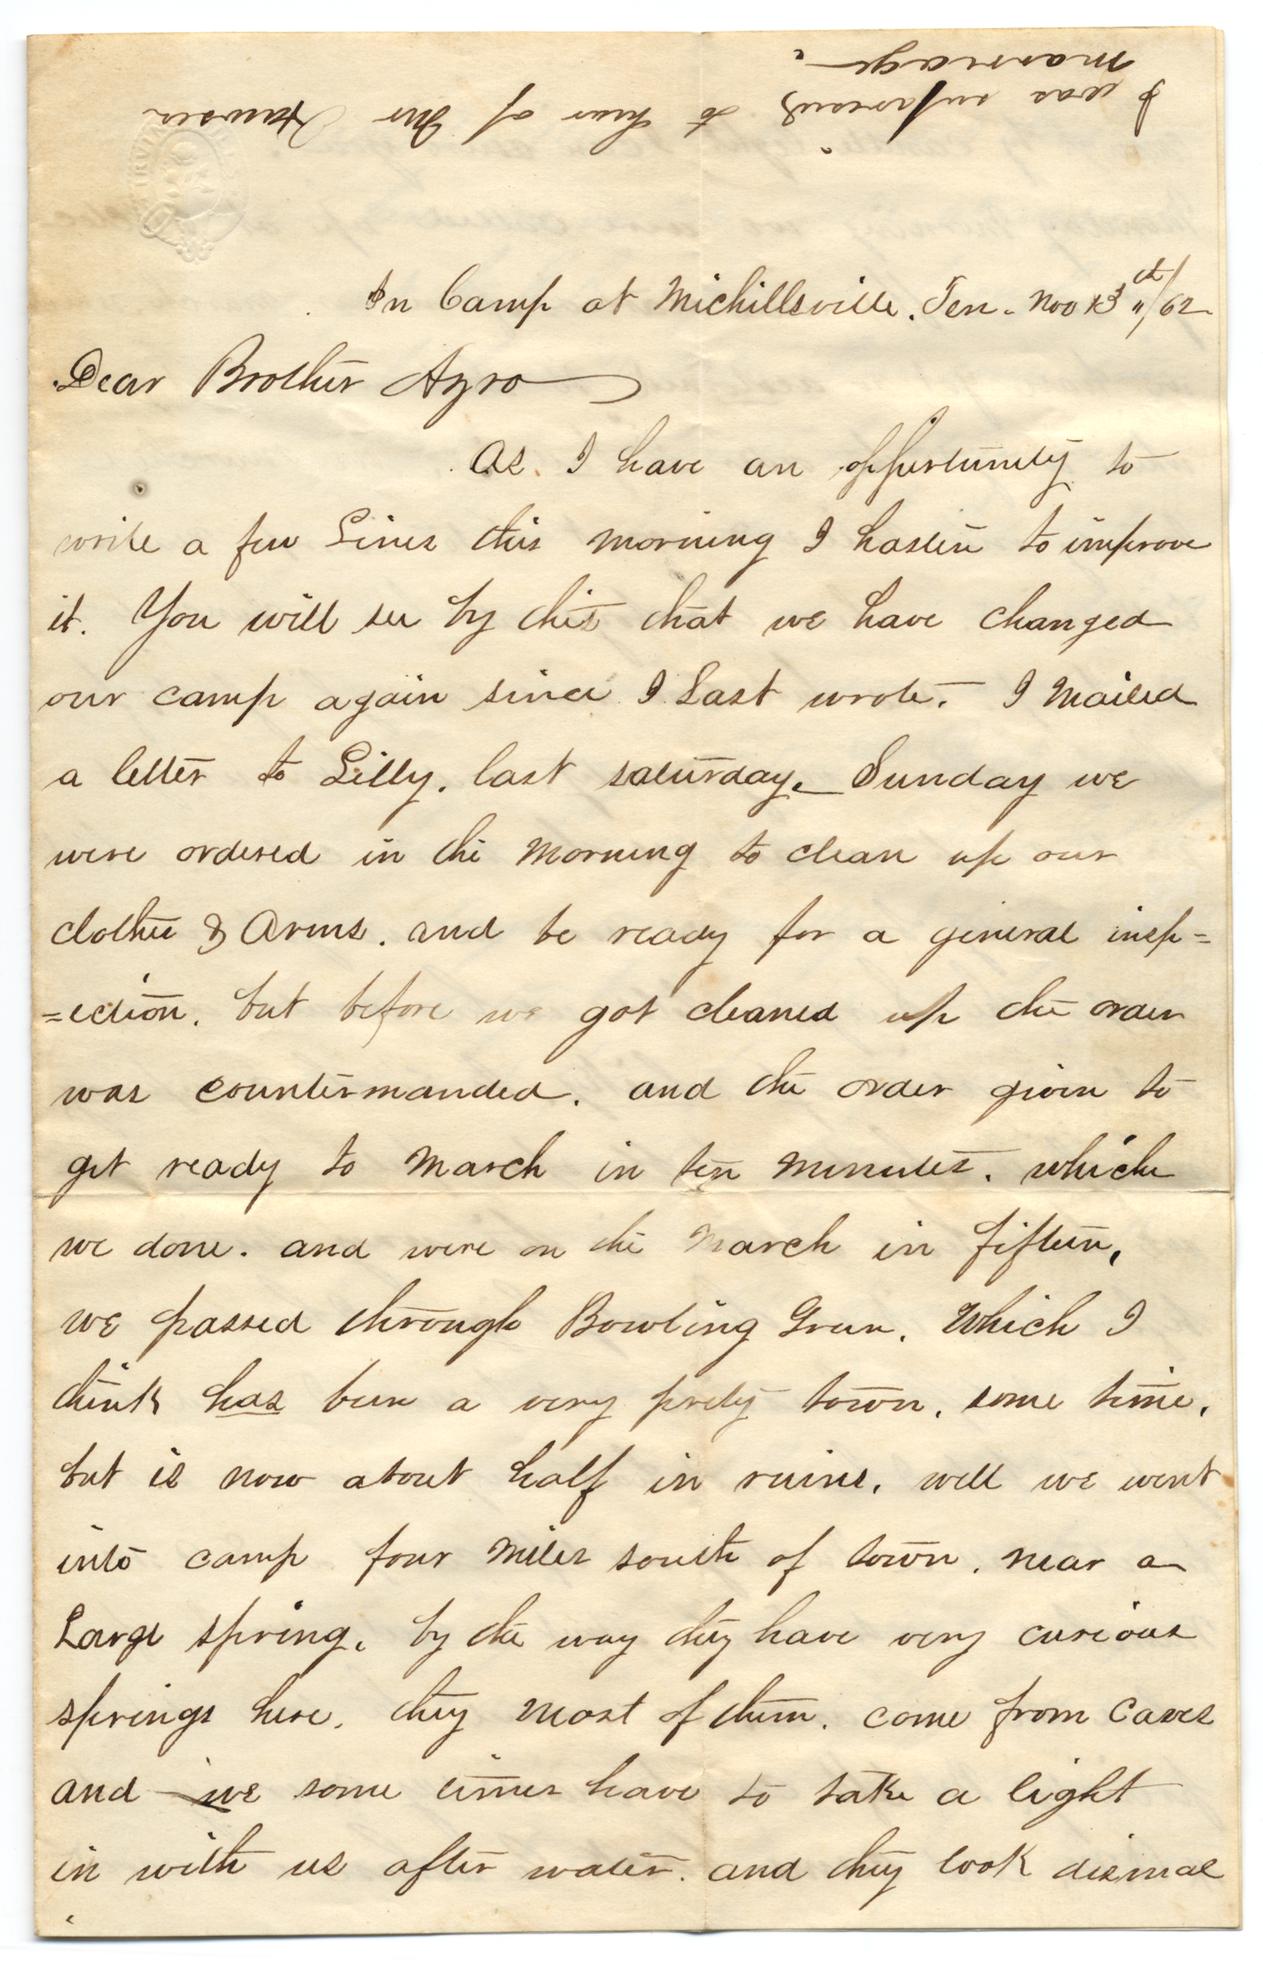 I was surprised to hear of Mr Hawses
marriage.
In Camp at Michillsville. Ten. Nov 13th/62
Dear Brother Azro
As I have an oppurtunity to
write a few Lines this morning I hasten to improve
it. You will see by this that we have changed
our camp again since I Last wrote. I Mailed
a letter to Lilly. last saturday. Sunday we
were ordered in the Morning to clean up our
clothes & Arms. and be ready for a general insp=
=ection. but before we got cleaned up the order
was countermanded. and the order given to
get ready to March in ten Minutes. which
we done. and were on the March in fifteen,
we passed through Bowling Green. Which I
think has been a very prety town. some time.
but is now about half in ruins. well we went
into camp four Miles south of town. near a
Large spring. by the way they have very curious
springs here. they Most of them. come from Caves
and we some times have to take a light
in with us after water. and they look dismal